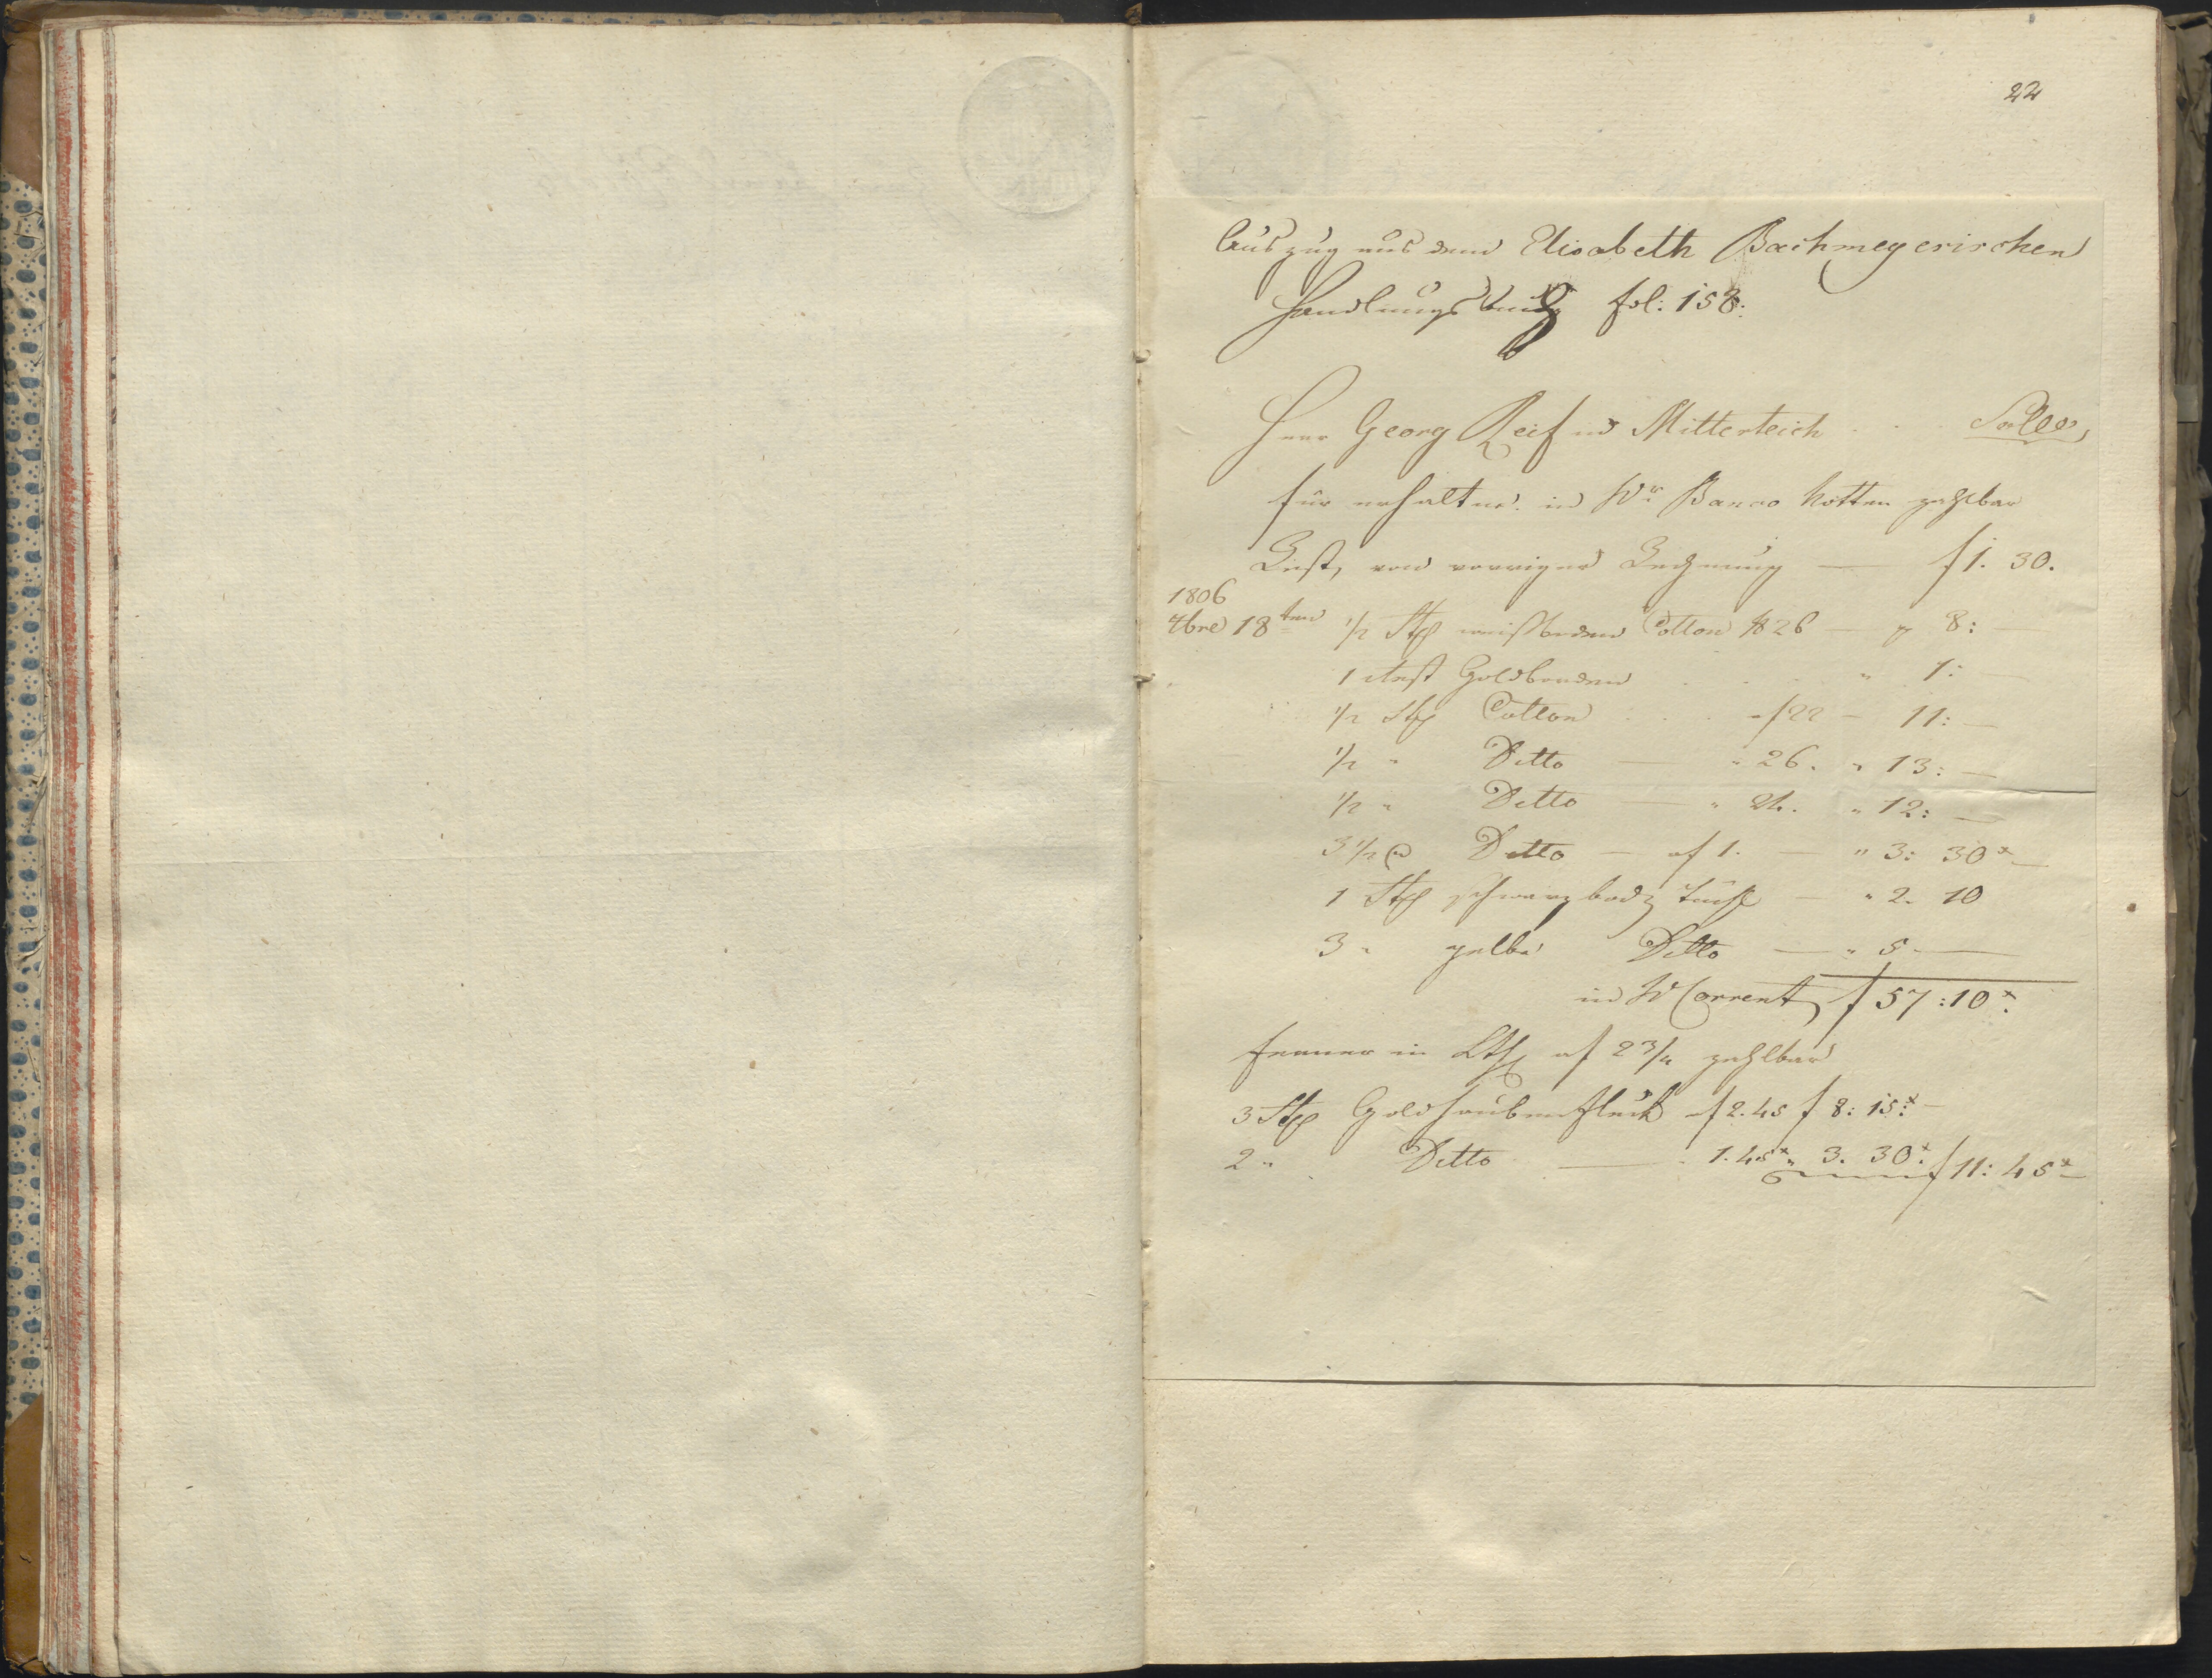 22
Auszug aus dem Elisabeth Bachmeyerischen
Handlungsbuch fol: 158:
Herr Georg Reif in Mitterteich . . Solle,
für erhaltne in Wr Banco Notten zahlbar
Rest, von voriger Rechnung — f 1. 30.
1806
7bre 18ten 1/2 Stk weißboden Cotton 26 — 8: —
1 Rest Goldborden . . . " 1:
1/2 Stk Cotton . . . af 22 — 11: —
1/2 " Ditto — " 26. " 13: —
1/2 " Ditto — " 24. " 12: —
3 1/2 Ditto — af 1. — " 3: 30x —
1 Stk schwarzbod: Tuch — " 2. 10
3 " gelbe Ditto — " 5 —
in W Corrent f 57: 10x.
ferner in af 2 3/4 zahlbar
3 Stk Goldhaubenfleck af 2. 45 f 8: 15:x —
2 " Ditto — 1. 45x " 3. 30x. f 11: 45x —